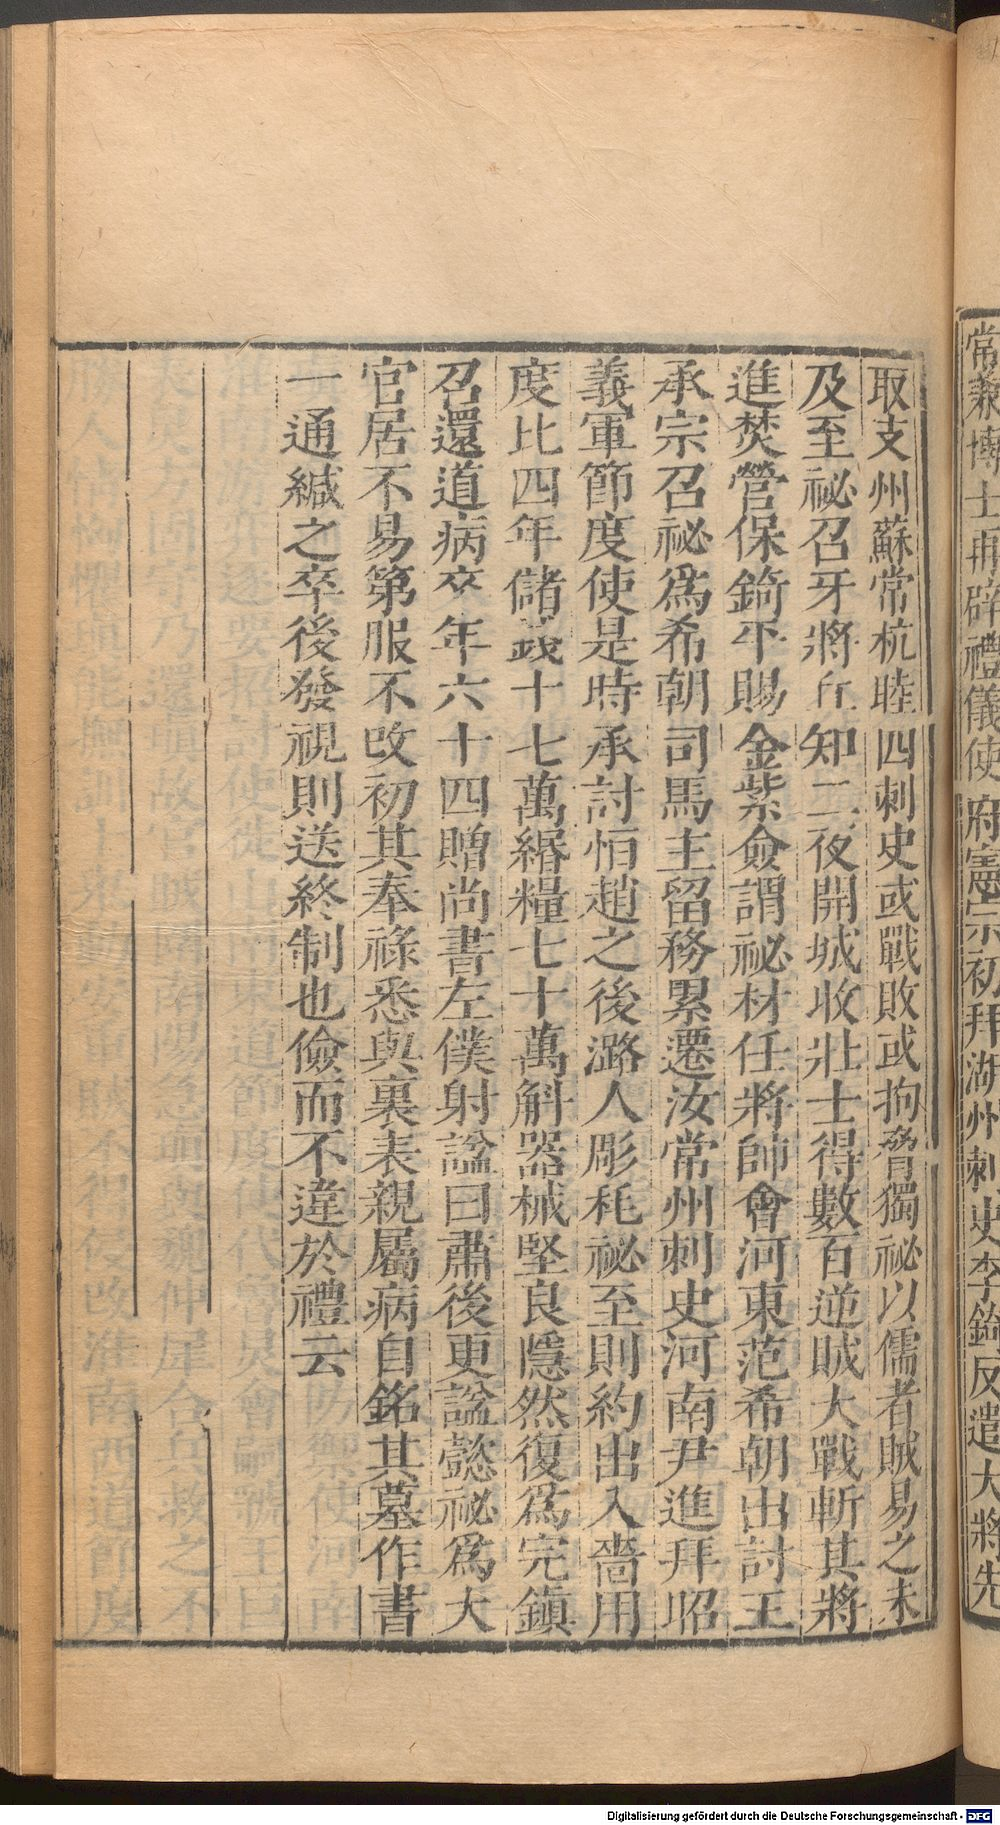 常兼博士再辟禮儀使府憲宗初拜湖州刺史李錡反遣大將先
取支州蘇常杭睦四刺史或戰敗或拘脅獨祕以儒者賊易之未
及至祕召牙將丘知二夜開城收壯士得數百逆賊大戰斬其將
進焚營保錡平賜金紫僉謂祕材任將帥會河東范希朝出討王
承宗召祕爲希朝司馬主留務累遷汝常州刺史河南尹進拜昭
義軍節度使是時承討恒趙之後潞人彫耗祕至則約出入嗇用
度比四年儲錢十七萬緡糧七十萬斛器械堅良隱然復爲完鎮
召還道病卒年六十四贈尚書左僕射諡曰肅後更諡懿祕爲大
官居不易第服不改初其奉祿悉與裏表親屬病自銘其墓作書
一通緘之卒後發視則送終制也儉而不違於禮云
Digitalisierung gefördert durch die Deutsche Forschungsgemeinschaft - DFG